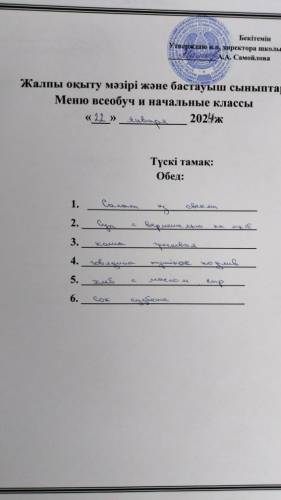 Бекітемін
Утверждаю и.о. директора школы
А.А. Самойлова
Жалпы оқыту мәзірі және бастауыш сыныптар
Меню всеобуч и начальные классы
«22» января 2024ж
Түскі тамақ:
Обед:
1. Салат из свеклы
2. Суп с вермишелью на
3. каша
4.
5. хлеб с маслом сыр
6. Сок